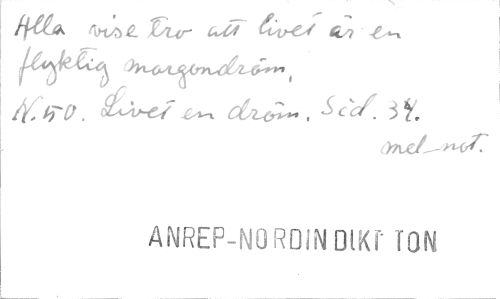 Alla vise tro att livet är en
flyktig morgondröm,
N. 50. Livet en dröm. Sid. 34.
mel-not.
ANREP-NORDIN DIKT TON